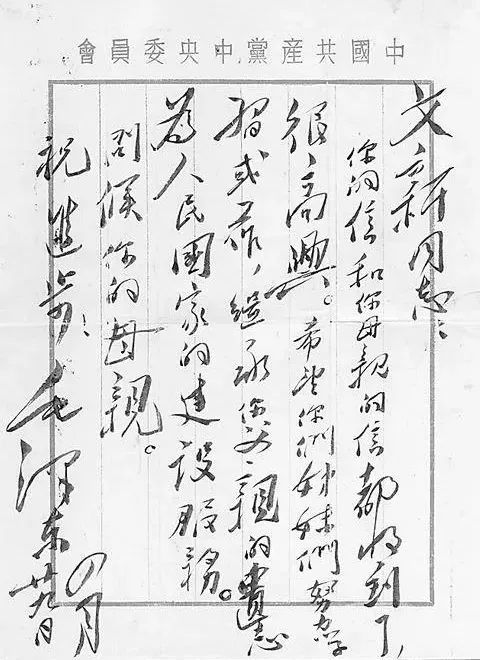 中國共產黨中央委員會
文新同志：
你的信和你母親的信都收到了，
很高興。希望你們姊妹們努力學
習或工作，繼承你父親的遺志
為人民國家的建設服務。
問候你的母親。
祝進步！毛澤東
四月
廿九日